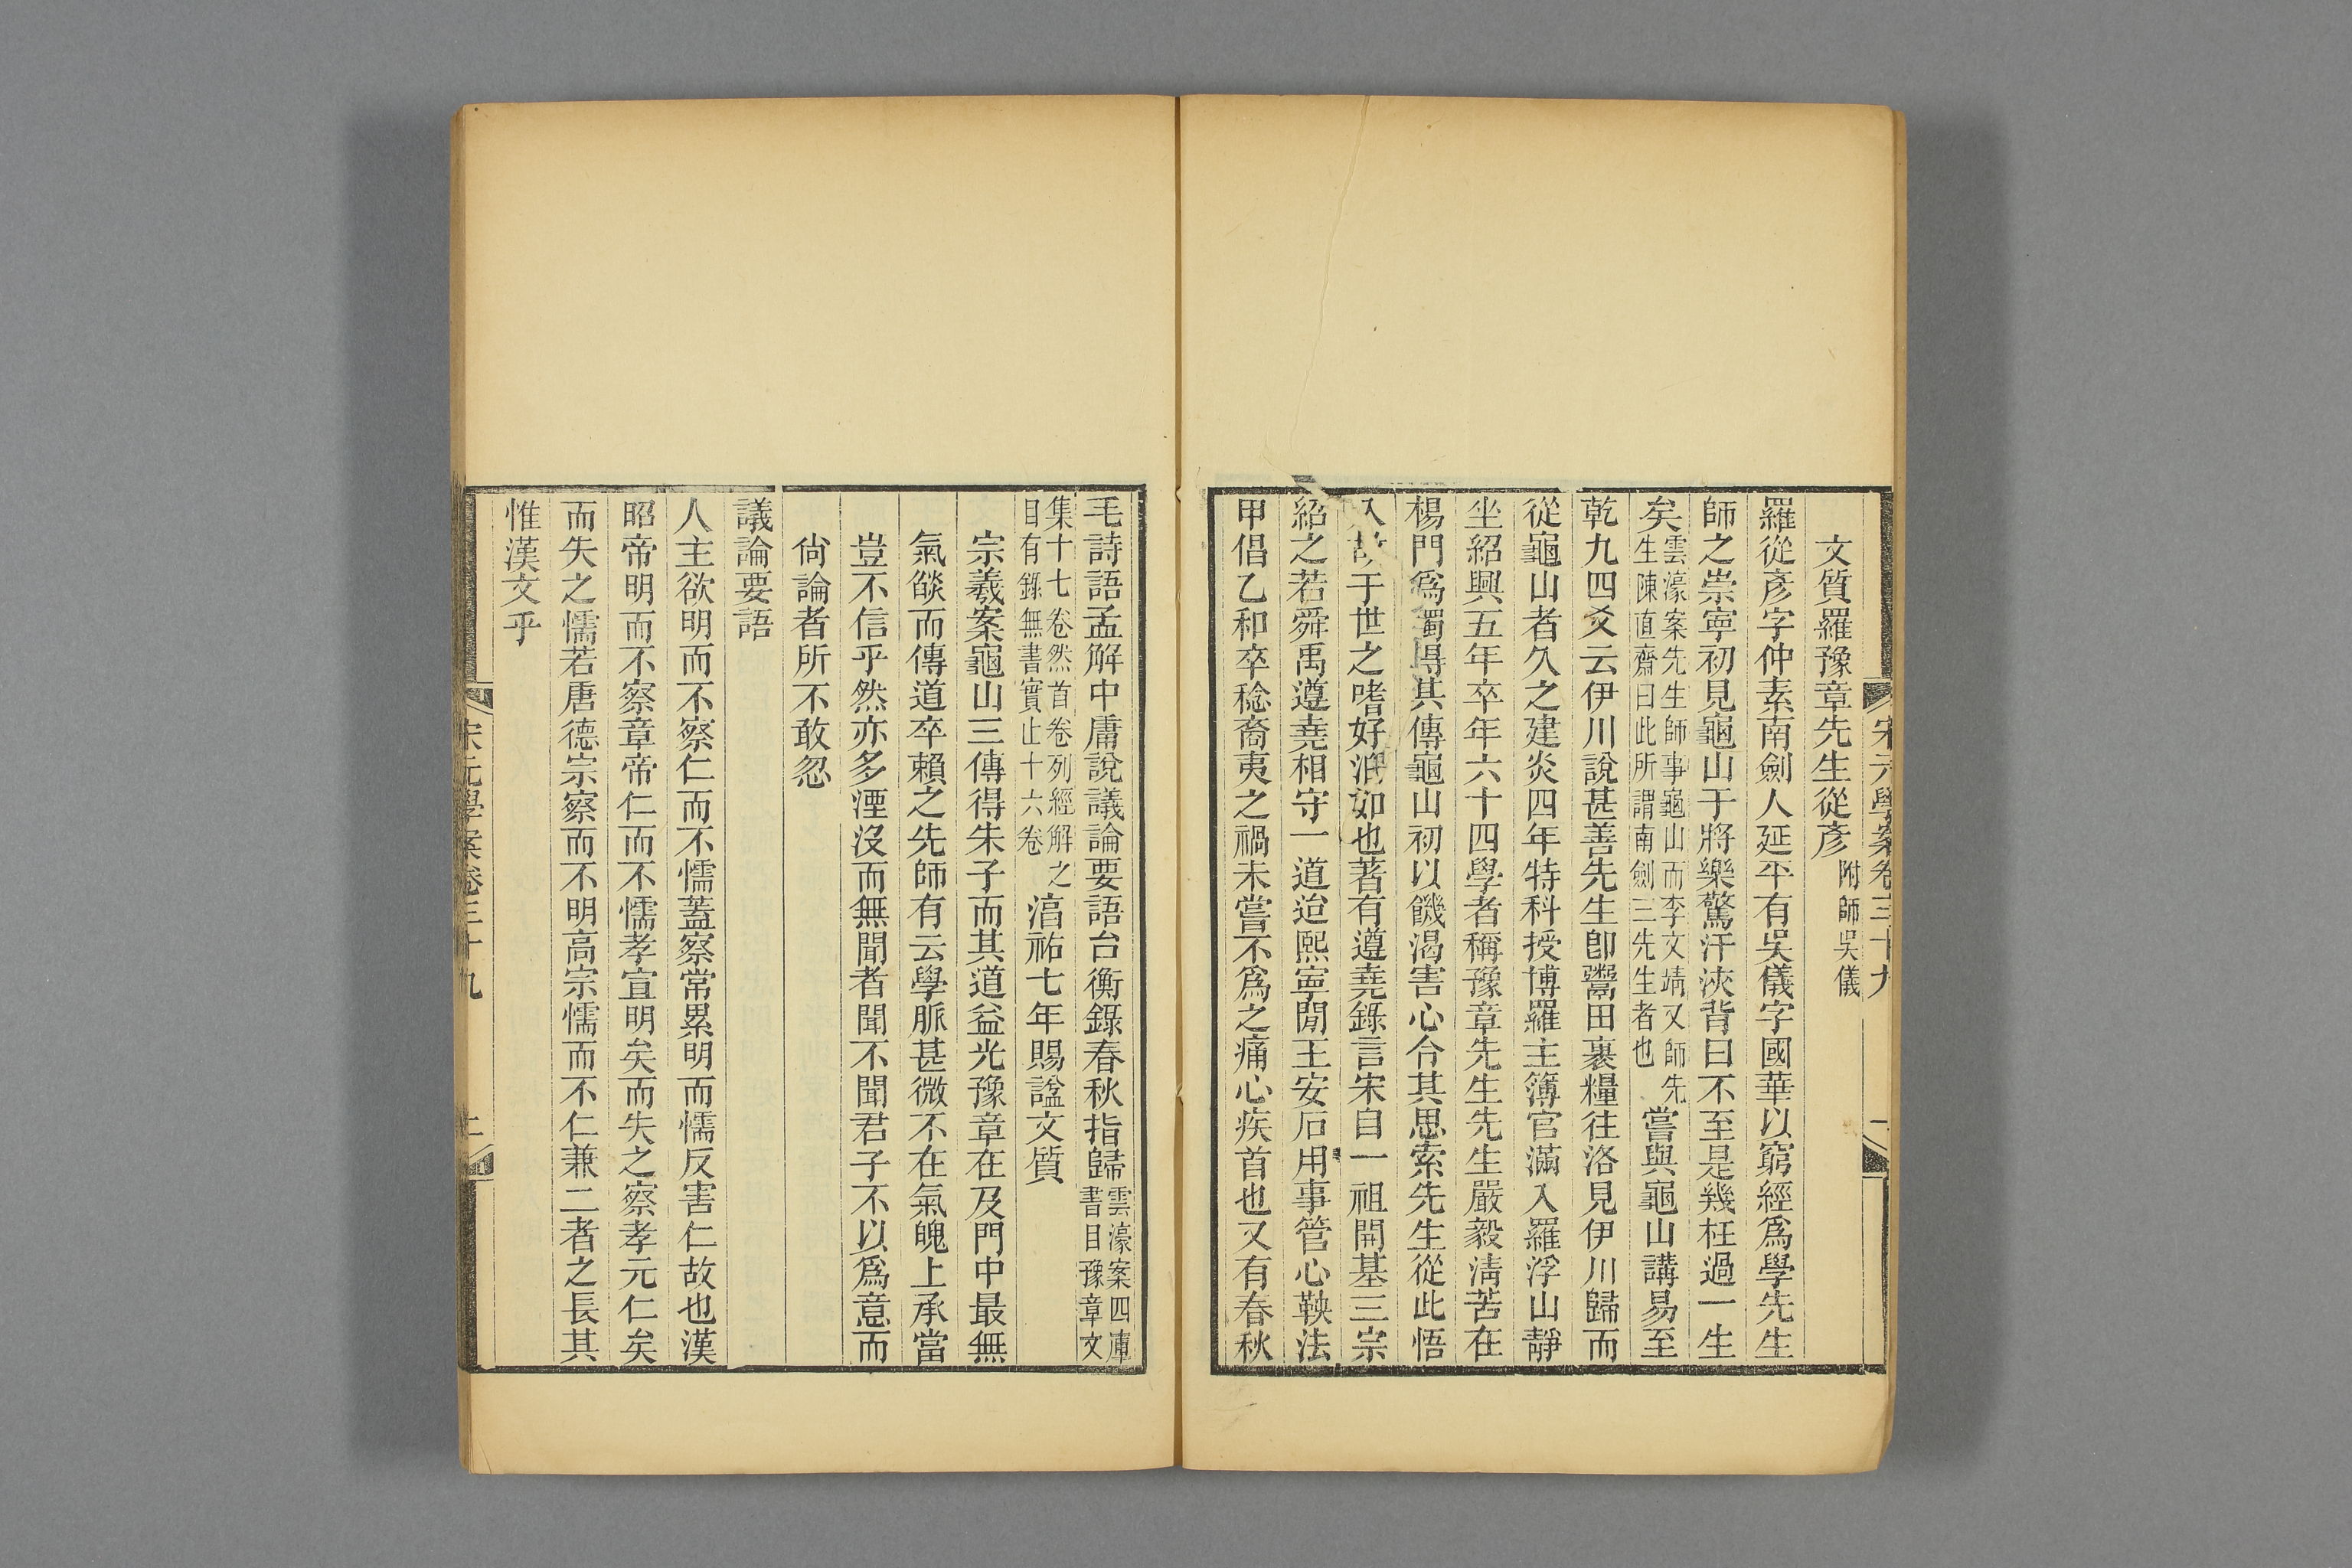 宋元學案卷三十九
文質羅豫章先生從彥附師吳儀
羅從彥字仲素南劍人延平有吳儀字國華以窮經爲學先生
師之崇寧初見龜山于將樂驚汗浹背曰不至是幾枉過一生
矣雲濠案先生師事龜山而李文靖又師先生陳直齋曰此所謂南劍三先生者也嘗與龜山講易至
乾九四爻云伊川說甚善先生卽鬻田裹糧往洛見伊川歸而
從龜山者久之建炎四年特科授博羅主簿官滿入羅浮山靜
坐紹興五年卒年六十四學者稱豫章先生先生嚴毅淸苦在
楊門爲獨得其傳龜山初以饑渴害心令其思索先生從此悟
入故于世之嗜好泊如也著有遵堯錄言宋自一祖開基三宗
紹之若舜禹遵堯相守一道迨熙寧閒王安石用事管心鞅法
甲倡乙和卒稔裔夷之禍未嘗不爲之痛心疾首也又有春秋
毛詩語孟解中庸說議論要語台衡錄春秋指歸雲濠案四庫書目豫章文
集十七卷然首卷列經解之目有錄無書實止十六卷湻祐七年賜諡文質
宗羲案龜山三傳得朱子而其道益光豫章在及門中最無
氣燄而傳道卒賴之先師有云學脈甚微不在氣魄上承當
豈不信乎然亦多湮沒而無聞者聞不聞君子不以爲意而
尙論者所不敢忽
議論要語
人主欲明而不察仁而不懦蓋察常累明而懦反害仁故也漢
昭帝明而不察章帝仁而不懦孝宣明矣而失之察孝元仁矣
而失之懦若唐德宗察而不明高宗懦而不仁兼二者之長其
惟漢文乎
宋元學案卷三十九
二